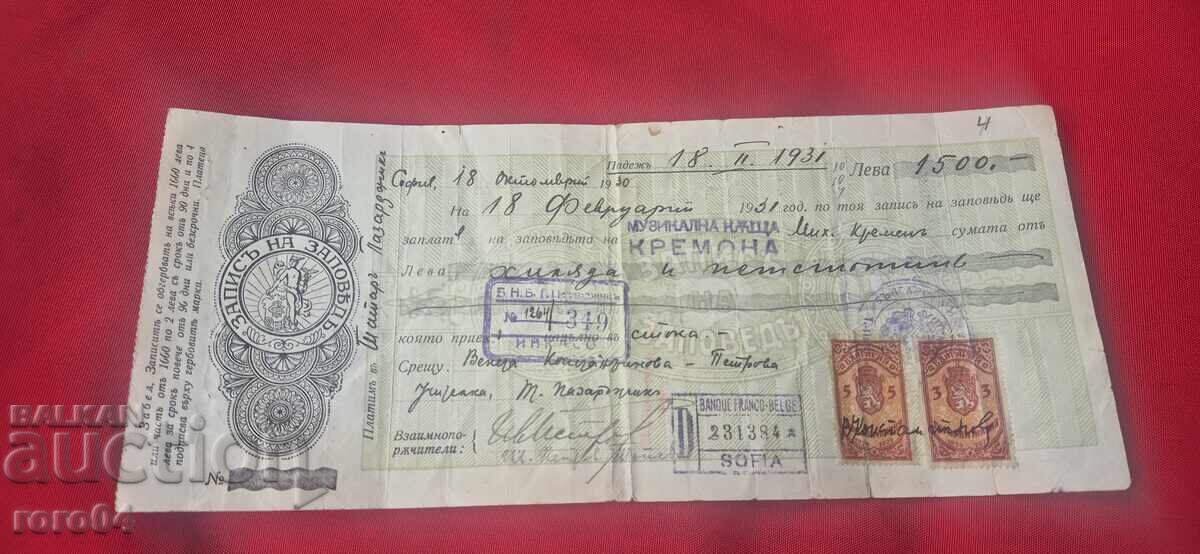 4
Падежъ 18. II. 1931 Лева 1500.–
София, 18 октомврий 1930
На 18 Февруарий 1931 год. по тоя запис на заповѣдь ще
МУЗИКАЛНА КѪЩА
КРЕМОНА
заплатя на заповѣдьта на Мих. Кременъ сумата отъ
Лева хиляда и петстотин
Б.Н.Б.
№ 1264/349
ИНКАСО
която стока –
Срещу: Венета Петрова
Учителка, Т. Пазарджикъ
Взаимнопо-
ржчители:
D
BANQUE FRANCO-BELGE
231384 *
SOFIA
БЪЛГАРИЯ
5 5
БЪЛГАРИЯ
3 3
Платимъ въ Татаръ Пазарджикъ
ЗАПИСЪ НА ЗАПОВѢДЬ
ЗАПИСЪ
НА
ЗАПОВЕДЬ
Забел. Записитѣ се обгербватъ на всѣки 1660 лева
или часть отъ 1660 по 2 лева съ срокъ отъ 90 дни и по 4
лева за срокъ повече отъ 90 дни или безсрочни. Платеца
подписва върху гербовитѣ марки.
№
BALKAN
auction
roro04